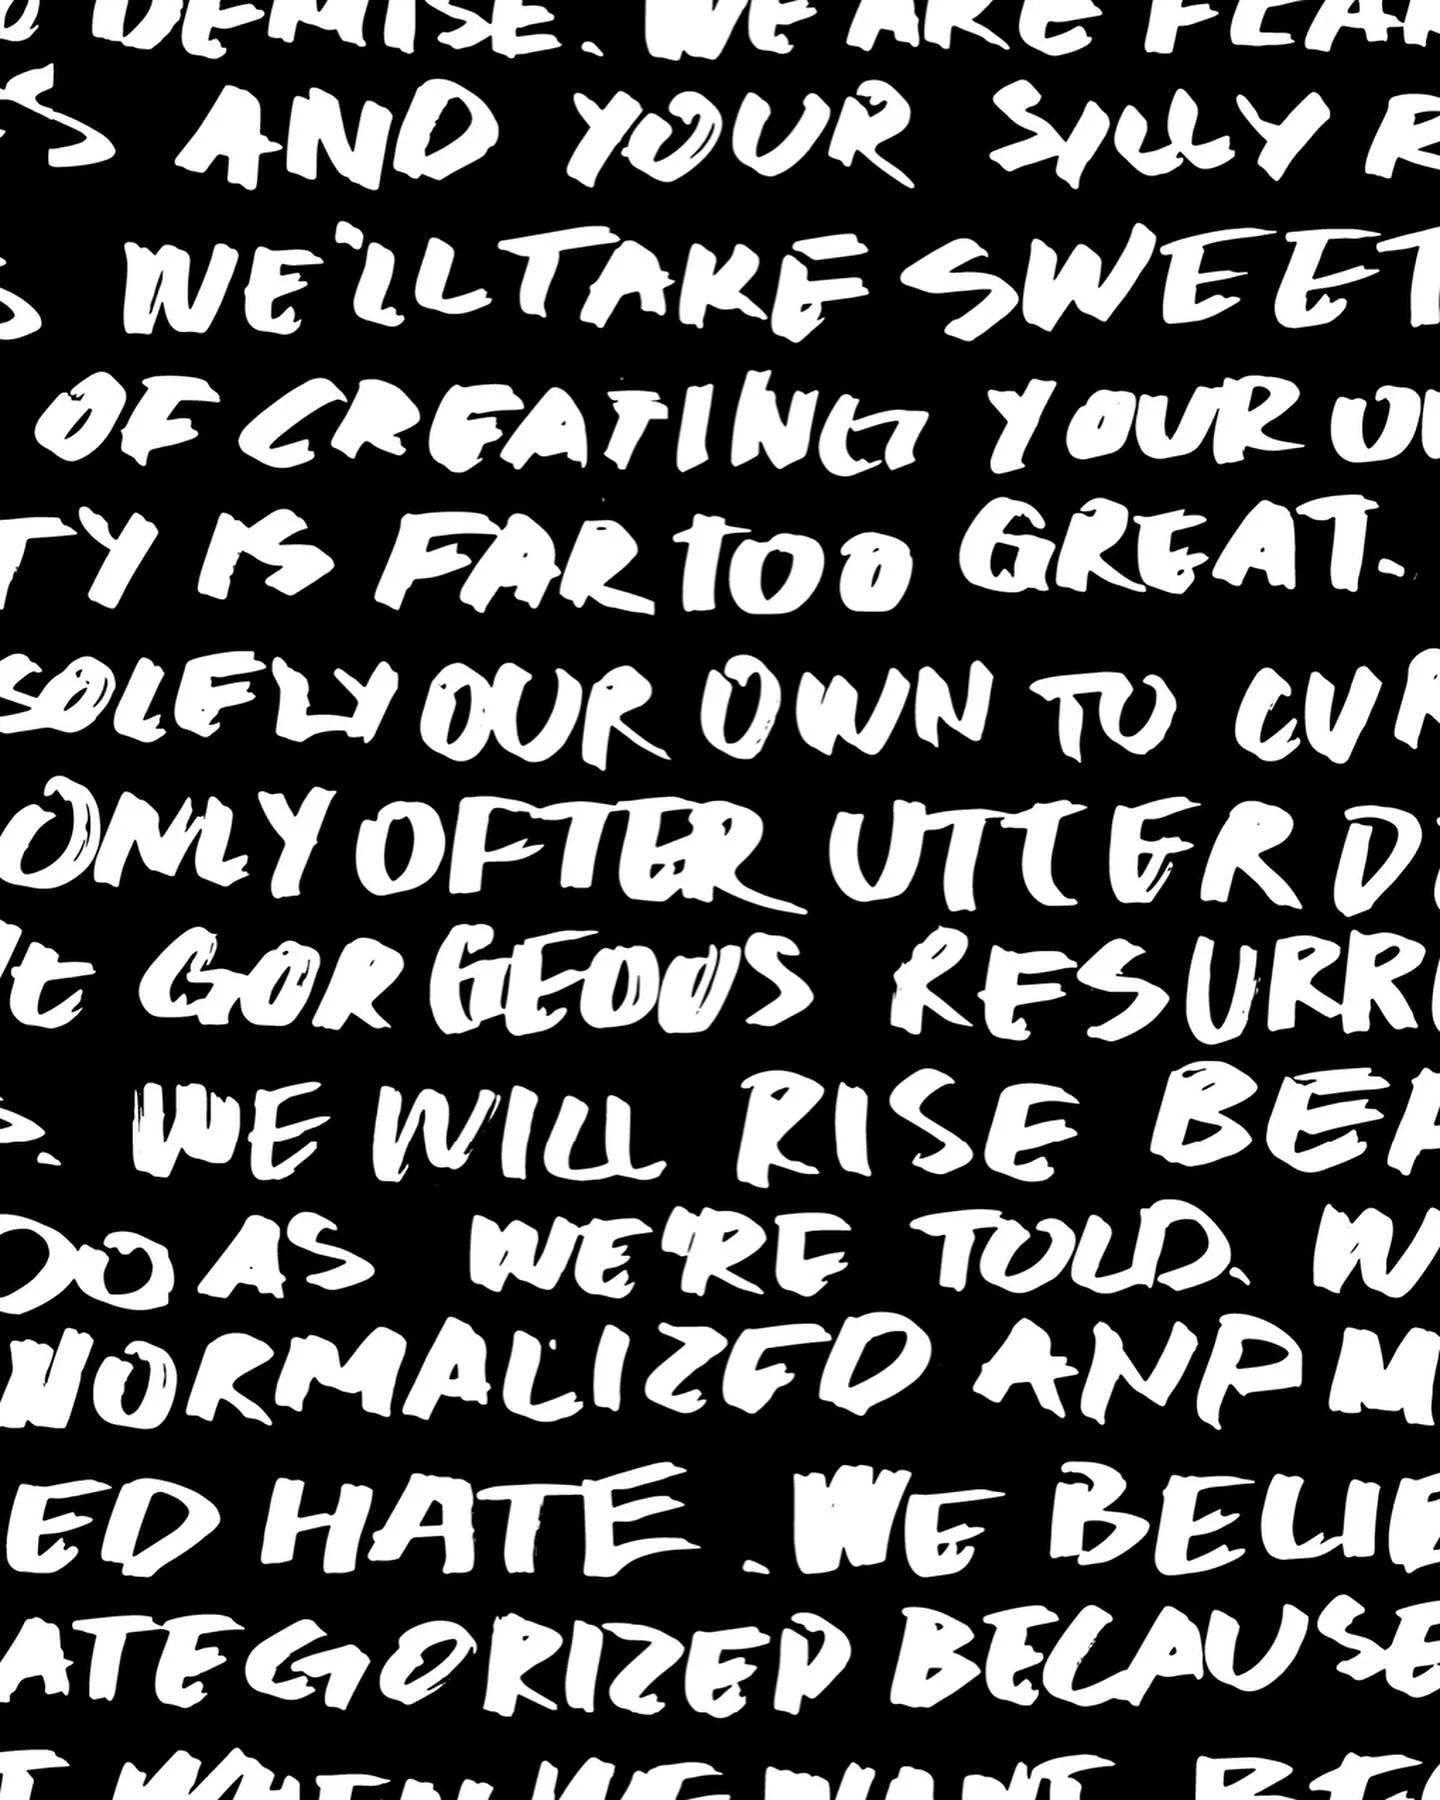 DEMISE. WE ARE FEAR
AND YOUR SILLY R
WE'LL TAKE SWEET
OF CREATING YOUR OW
TY IS FAR TOO GREAT.
SOLELY OUR OWN TO CUR
ONLY OFTER UTTER D
GORGEOUS RESURRE
WE WILL RISE BEA
DO AS WE'RE TOLD. W
NORMALIZED AND M
ED HATE. WE BELIE
ATEGORIZED BECAUSE
WHEN WE WANT. BEC